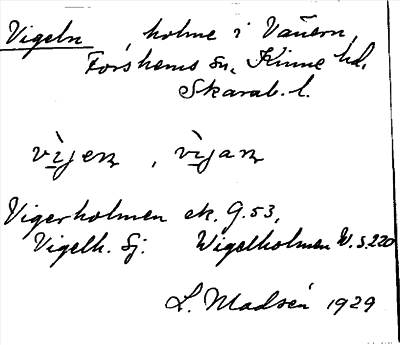 Vigeln , holme i Vänern,
Forshems sn, Kinne hd,
Skarab. l.
vìjen , vìjan
Vigerholmen ek. G.53,
Vigelh. Sj. Wigelholmen W.s.220
L. Madsén 1929